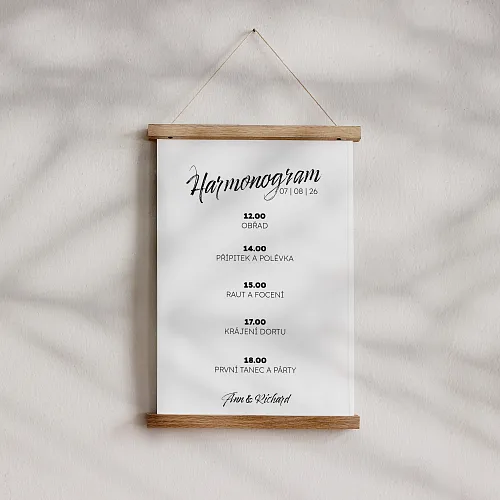 Harmonogram
07 | 08 | 26
12.00
OBŘAD
14.00
PŘÍPITEK A POLÉVKA
15.00
RAUT A FOCENÍ
17.00
KRÁJENÍ DORTU
18.00
PRVNÍ TANEC A PÁRTY
Ann & Richard